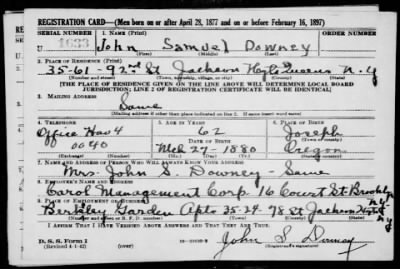 REGISTRATION CARD—(Men born on or after April 28, 1877 and on or before February 16, 1897)
SERIAL NUMBER 1. NAME (Print) ORDER NUMBER
U 1633 John Samuel Downey
(First) (Middle) (Last)
2. PLACE OF RESIDENCE (Print)
35-61-92nd St Jackson Hgts Queens N.Y
(Number and street) (Town, township, village, or city) (County) (State)
[THE PLACE OF RESIDENCE GIVEN ON THE LINE ABOVE WILL DETERMINE LOCAL BOARD
JURISDICTION; LINE 2 OF REGISTRATION CERTIFICATE WILL BE IDENTICAL]
3. MAILING ADDRESS
Same
(Mailing address if other than place indicated on line 2. If same insert word same)
4. TELEPHONE 5. AGE IN YEARS 6. PLACE OF BIRTH
Office Hav 4 62 Joseph
0040 DATE OF BIRTH
Mch 27-1880 Oregon
(Exchange) (Number) (Mo.) (Day) (Yr.) (State or country)
7. NAME AND ADDRESS OF PERSON WHO WILL ALWAYS KNOW YOUR ADDRESS
Mrs. John S. Downey - Same
8. EMPLOYER'S NAME AND ADDRESS
Carol Management Corp. 16 Court St. Brooklyn
N.Y.
9. PLACE OF EMPLOYMENT OR BUSINESS
Berkley Garden Apts 35-24-78 St Jackson Hgts
N.Y
(Number and street or R. F. D. number) (Town) (County) (State)
I AFFIRM THAT I HAVE VERIFIED ABOVE ANSWERS AND THAT THEY ARE TRUE.
D. S. S. Form 1
(Revised 4-1-42) John S. Downey
(Registrant's signature)